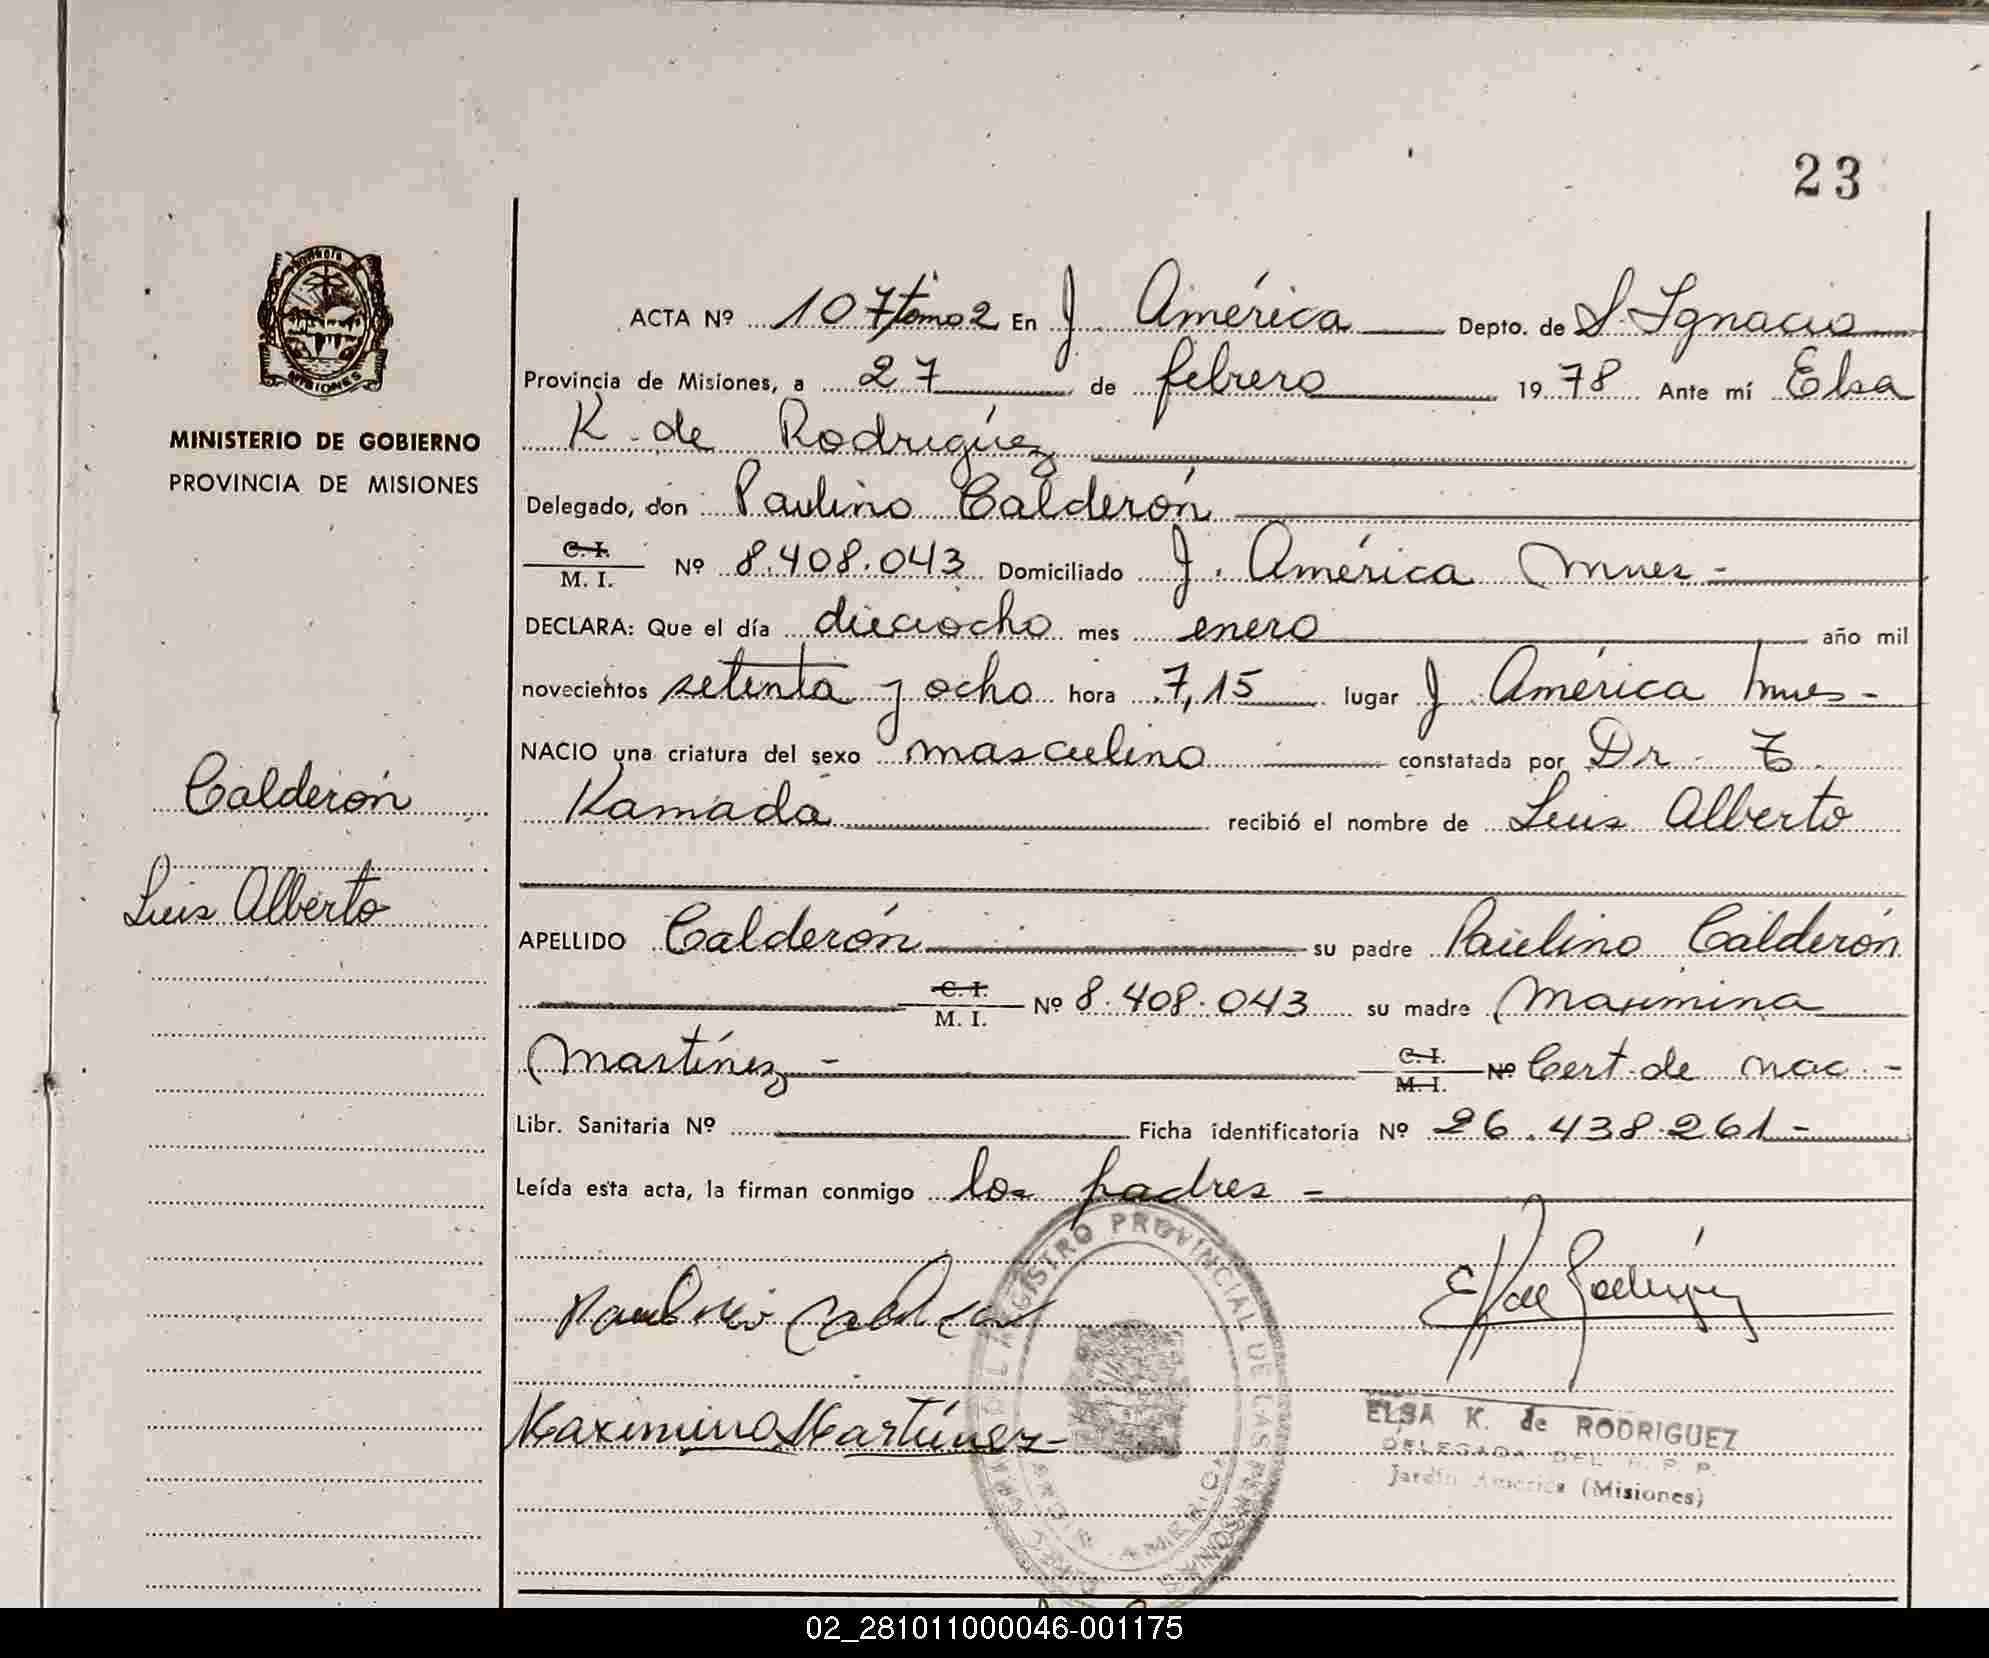 23
PROVINCIA DE
MISIONES
MINISTERIO DE GOBIERNO
PROVINCIA DE MISIONES
Calderón
Luis Alberto
ACTA Nº 107/tomo 2 En J. América Depto. de S. Ignacio
Provincia de Misiones, a 27 de febrero 1978 Ante mí Elsa
K. de Rodrigúez
Delegado, don Paulino Calderón
C. I. / M. I. Nº 8.408.043 Domiciliado J. América Mnes -
DECLARA: Que el día dieciocho mes enero año mil
novecientos setenta y ocho hora 7,15 lugar J. América Mnes -
NACIO una criatura del sexo masculino constatada por Dr. T.
Kamada recibió el nombre de Luis Alberto
APELLIDO Calderón su padre Paulino Calderón
C. I. / M. I. Nº 8.408.043 su madre Maximina
Martínez - C. I. / M. I. Nº Cert. de nac. -
Libr. Sanitaria Nº Ficha identificatoria Nº 26.438.261 -
Leída esta acta, la firman conmigo los padres -
Paulino Calderon
E K de Rodriguez
Maximina Martínez
REGISTRO PROVINCIAL DE LAS PERSONAS
ELSA K. de RODRIGUEZ
DELEGADA DEL R. P. P.
Jardín América (Misiones)
02_281011000046-001175